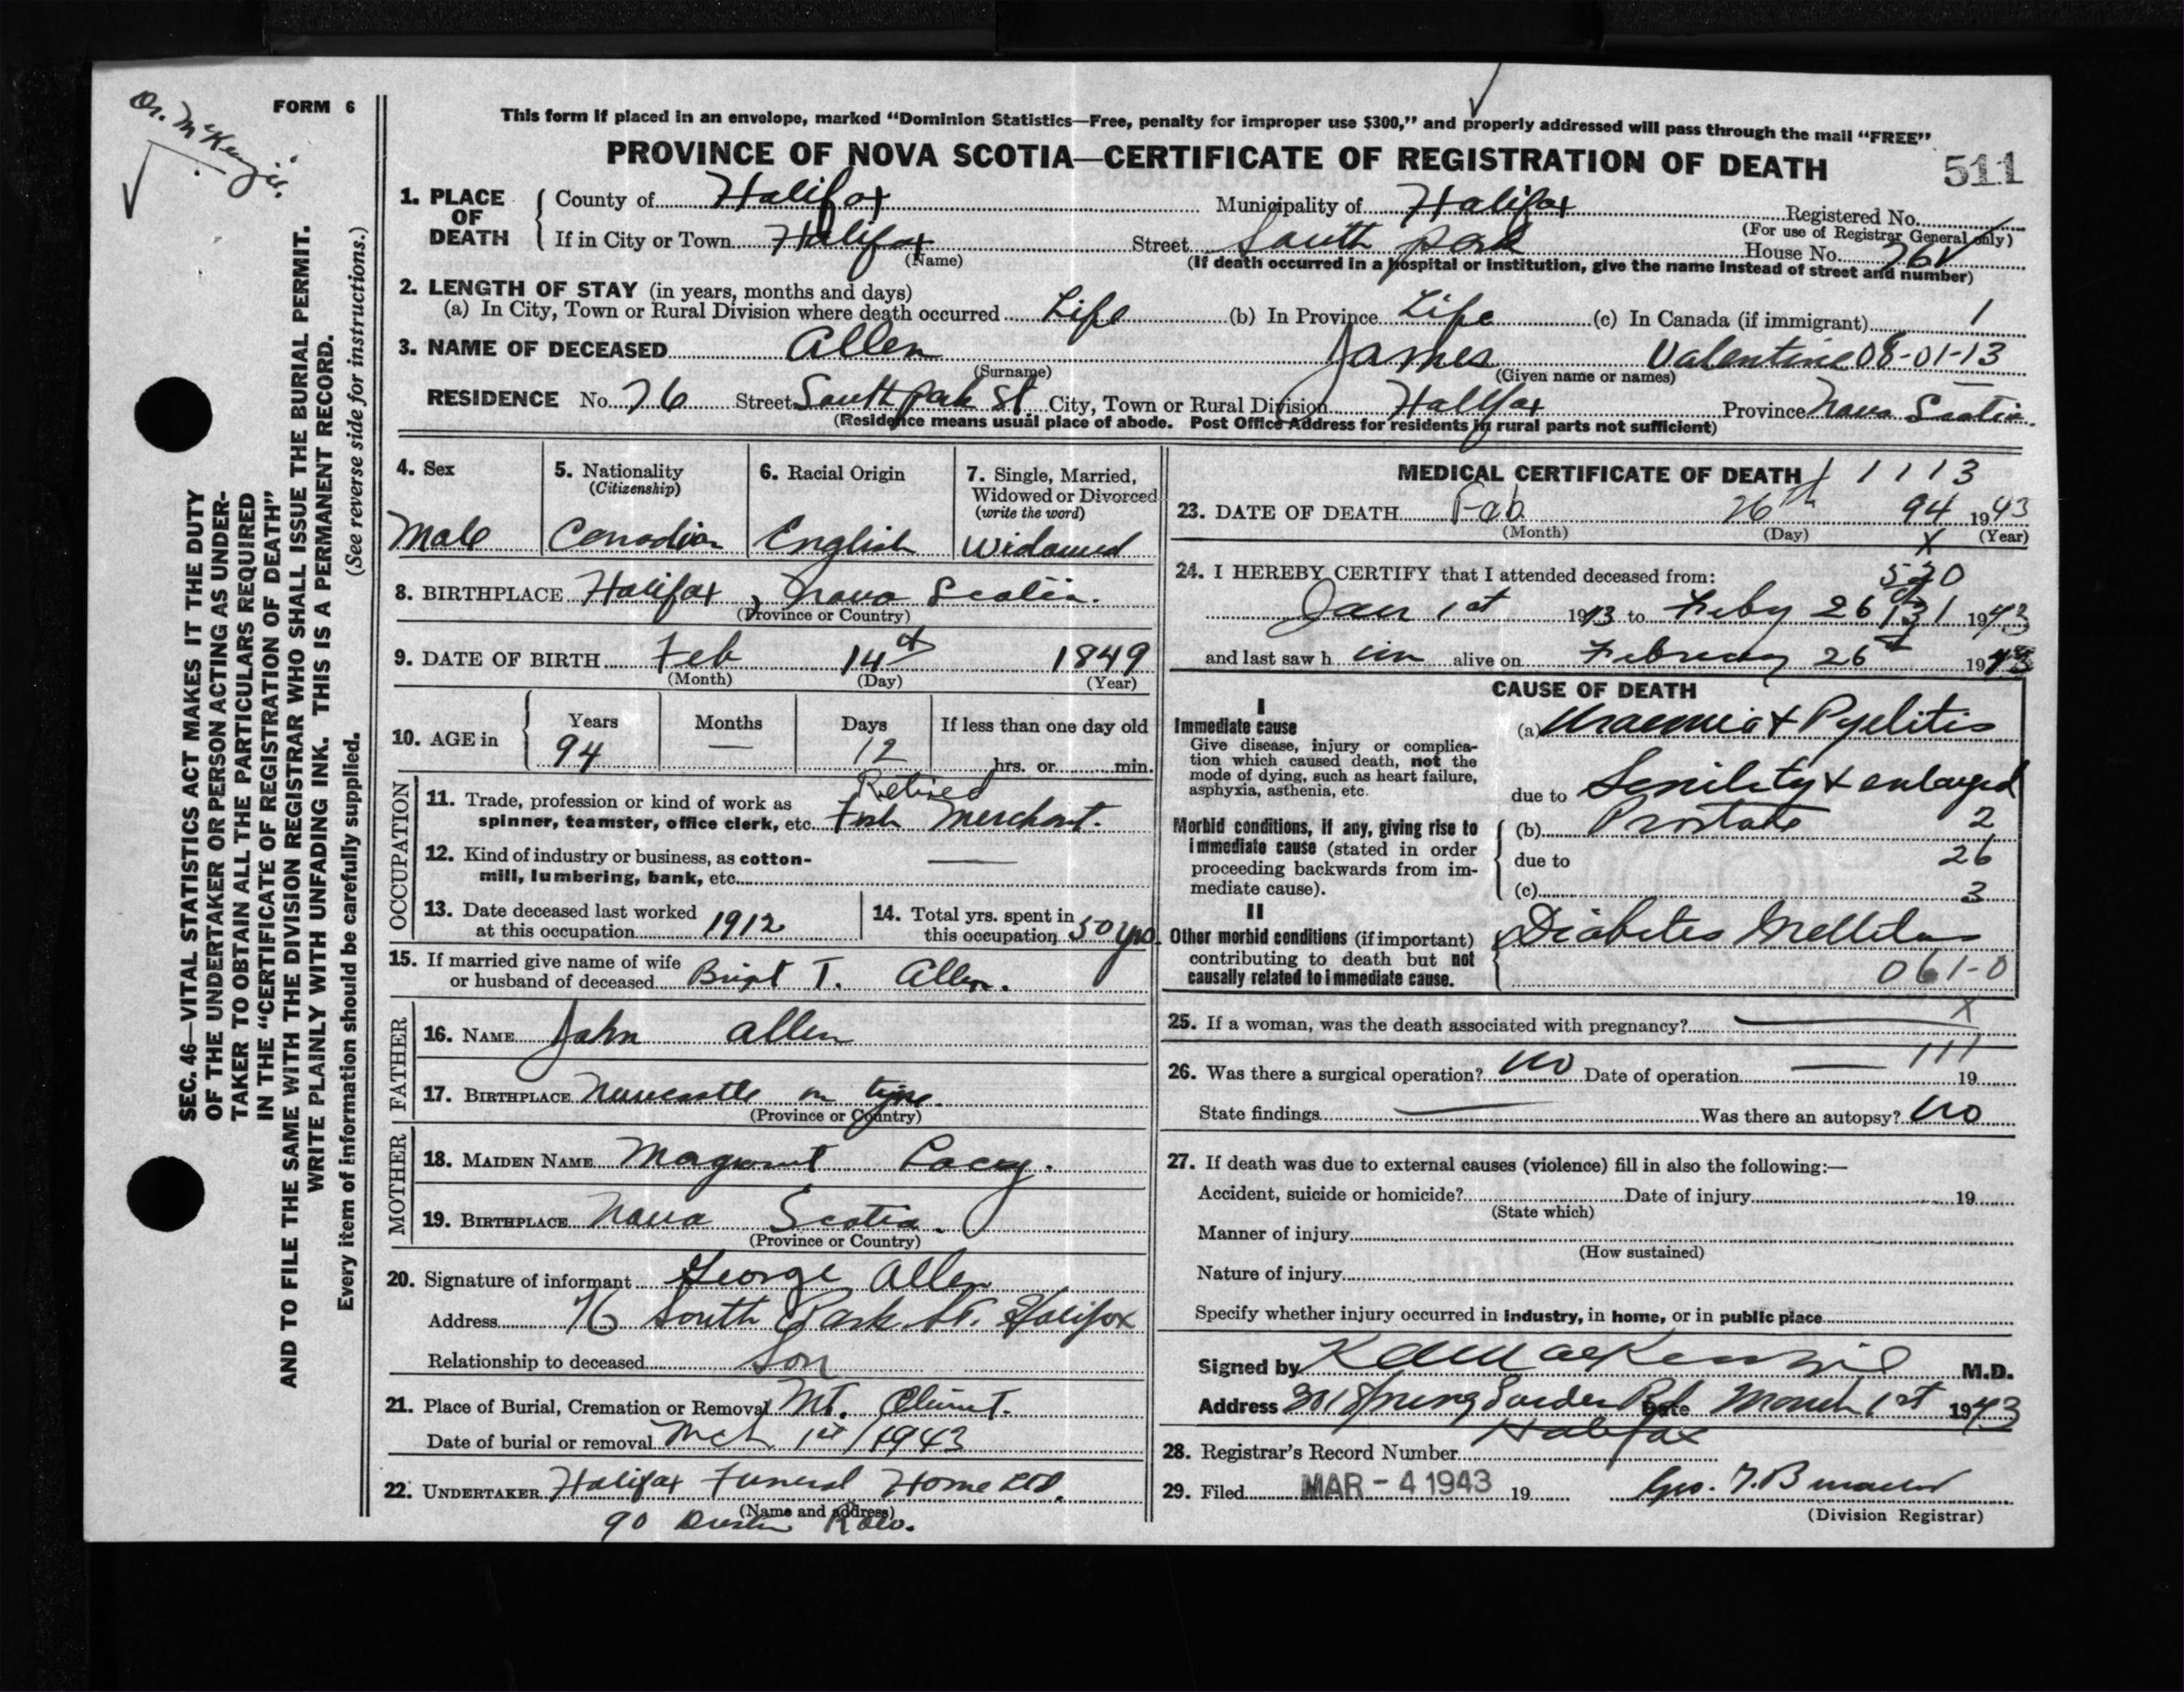 Dr. McKenzie
FORM 6
SEC. 46—VITAL STATISTICS ACT MAKES IT THE DUTY
OF THE UNDERTAKER OR PERSON ACTING AS UNDER-
TAKER TO OBTAIN ALL THE PARTICULARS REQUIRED
IN THE "CERTIFICATE OF REGISTRATION OF DEATH"
AND TO FILE THE SAME WITH THE DIVISION REGISTRAR WHO SHALL ISSUE THE BURIAL PERMIT.
WRITE PLAINLY WITH UNFADING INK. THIS IS A PERMANENT RECORD.
Every item of information should be carefully supplied. (See reverse side for instructions.)
This form if placed in an envelope, marked "Dominion Statistics—Free, penalty for improper use $300," and properly addressed will pass through the mail "FREE"
PROVINCE OF NOVA SCOTIA—CERTIFICATE OF REGISTRATION OF DEATH 511
1. PLACE OF DEATH County of Halifax Municipality of Halifax Registered No.
(For use of Registrar General only)
If in City or Town Halifax Street South park House No. 76
(Name) (If death occurred in a hospital or institution, give the name instead of street and number)
2. LENGTH OF STAY (in years, months and days)
(a) In City, Town or Rural Division where death occurred Life (b) In Province Life (c) In Canada (if immigrant) 1
3. NAME OF DECEASED Allen James Valentine 08-01-13
(Surname) (Given name or names)
RESIDENCE No. 76 Street South park St City, Town or Rural Division Halifax Province Nova Scotia
(Residence means usual place of abode. Post Office Address for residents in rural parts not sufficient)
4. Sex 5. Nationality (Citizenship) 6. Racial Origin 7. Single, Married, Widowed or Divorced (write the word)
Male Canadian English Widowed
8. BIRTHPLACE Halifax, Nova Scotia.
(Province or Country)
9. DATE OF BIRTH Feb 14th 1849
(Month) (Day) (Year)
10. AGE in Years Months Days If less than one day old
94 — 12 hrs. or min.
OCCUPATION
Retired
11. Trade, profession or kind of work as
spinner, teamster, office clerk, etc. Fish Merchant.
12. Kind of industry or business, as cotton-
mill, lumbering, bank, etc. —
13. Date deceased last worked at this occupation 1912
14. Total yrs. spent in this occupation 50 yrs.
15. If married give name of wife
or husband of deceased T. Allen.
FATHER
16. NAME John Allen
17. BIRTHPLACE Newcastle on tyne.
(Province or Country)
MOTHER
18. MAIDEN NAME Margaret
19. BIRTHPLACE Nova Scotia.
(Province or Country)
20. Signature of informant George Allen
Address 76 South Park St. Halifax
Relationship to deceased Son
21. Place of Burial, Cremation or Removal Mt. Olivet.
Date of burial or removal Mch 1st/1943
22. UNDERTAKER Halifax Funeral Home Ltd.
(Name and address)
90 Row.
MEDICAL CERTIFICATE OF DEATH 1113
23. DATE OF DEATH Feb. 26th 94 1943
(Month) (Day) X (Year)
24. I HEREBY CERTIFY that I attended deceased from: 520
Jan 1st 1943 to Feby 26 131 1943
and last saw him alive on February 26th 1943
CAUSE OF DEATH
I
Immediate cause
Give disease, injury or complica-
tion which caused death, not the
mode of dying, such as heart failure,
asphyxia, asthenia, etc.
(a) Uraemia & Pyelitis
due to Senility & enlarged
Morbid conditions, if any, giving rise to
immediate cause (stated in order
proceeding backwards from im-
mediate cause).
(b) Prostate 2
due to 26
(c) 3
II
Other morbid conditions (if important)
contributing to death but not
causally related to immediate cause.
Diabetes Mellitus
061-0
X
25. If a woman, was the death associated with pregnancy? —
111
26. Was there a surgical operation? no Date of operation — 19
State findings — Was there an autopsy? no
27. If death was due to external causes (violence) fill in also the following:—
Accident, suicide or homicide? Date of injury 19
(State which)
Manner of injury
(How sustained)
Nature of injury
Specify whether injury occurred in industry, in home, or in public place
Signed by MacKenzie M.D.
Address Spring Garden Rd Date March 1st 1943
Halifax
28. Registrar's Record Number
29. Filed MAR - 4 1943 19 Geo.
(Division Registrar)